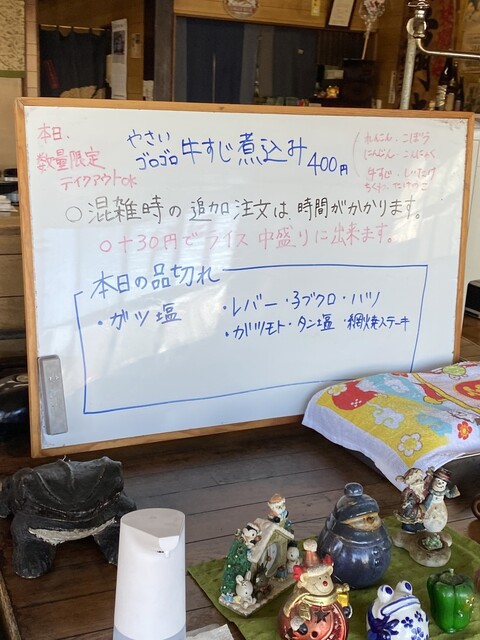 本日.
数量限定
テイクアウトOK
やさい
ゴロゴロ 牛すじ煮込み 400円
れんこん・ごぼう
にんじん・こんにゃく
牛すじ・しいたけ
ちくわ・たけのこ
○混雑時の追加注文は、時間がかかります。
○+30円でライス中盛りに出来ます。
本日の品切れ
・ガツ塩
・レバー・子ブクロ・ハツ
・ガツモト・タン塩・網焼ステーキ